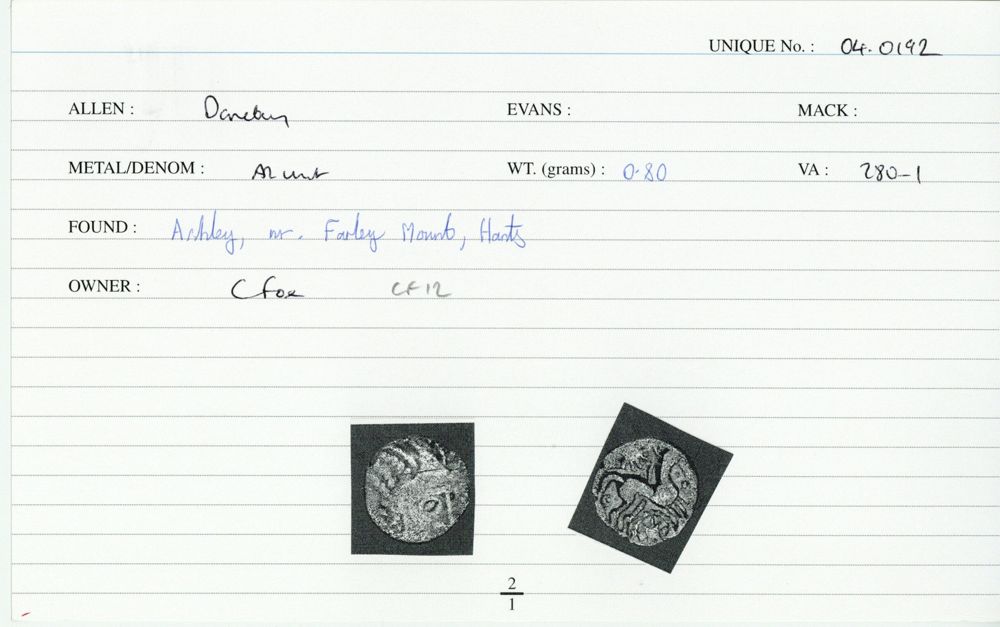 UNIQUE No. : 04.0192
ALLEN : Danebury EVANS : MACK :
METAL/DENOM : AR unit WT. (grams) : 0.80 VA : 280-1
FOUND : Ashley, nr. Farley Mount, Hants
OWNER : C Fox CF12
2
1